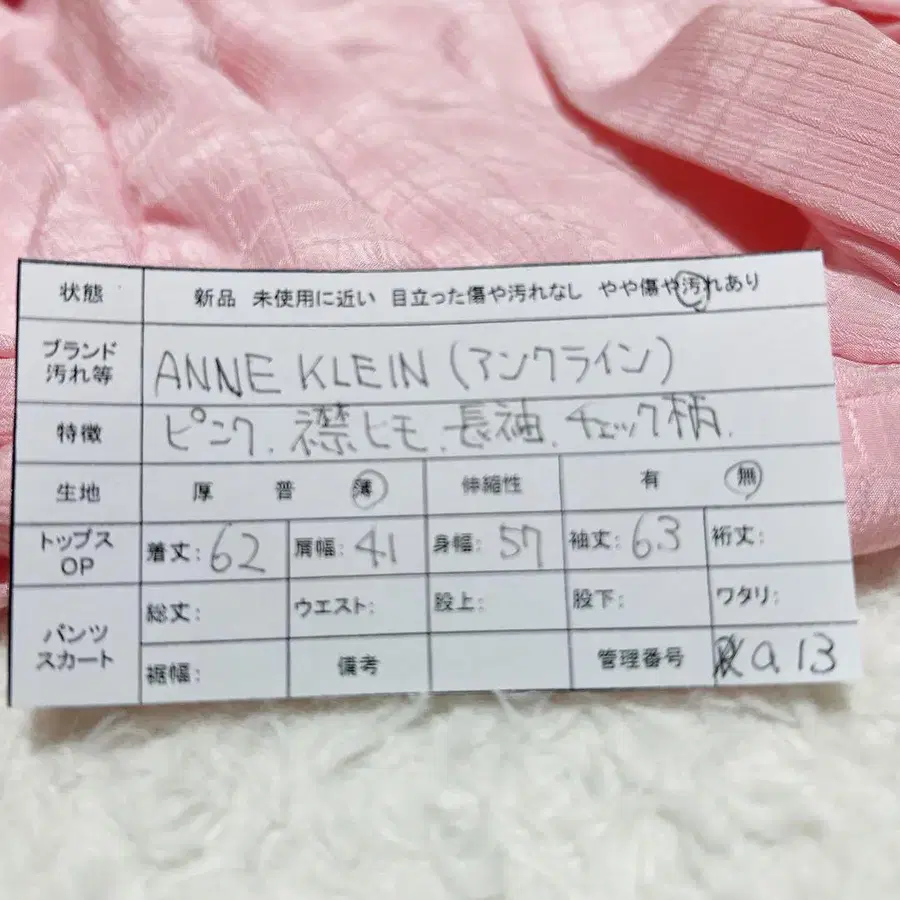 状態 新品 未使用に近い 目立った傷や汚れなし やや傷や汚れあり
ブランド
汚れ等 ANNE KLEIN (アンクライン)
特徴 ピンク、襟ヒモ、長袖、チェック柄、
生地 厚 普 薄 伸縮性 有 無
トップス
OP 着丈:62 肩幅:41 身幅:57 袖丈:63 裄丈:
パンツ
スカート 総丈: ウエスト: 股上: 股下: ワタリ:
裾幅: 備考 管理番号 a.13